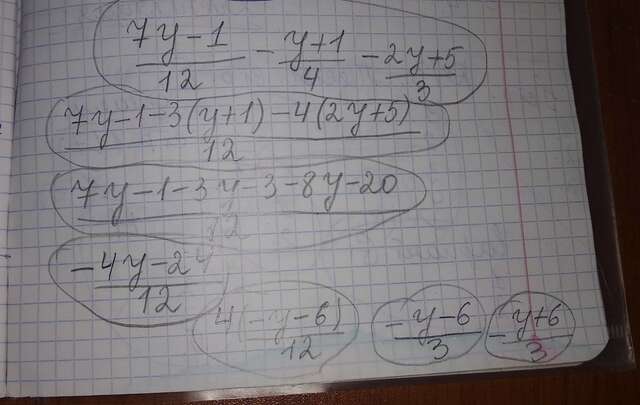 (7y-1)/12 - (y+1)/4 - (2y+5)/3
(7y-1-3(y+1)-4(2y+5))/12
(7y-1-3y-3-8y-20)/12
(-4y-24)/12
4(-y-6)/12 (-y-6)/3 -(y+6)/3